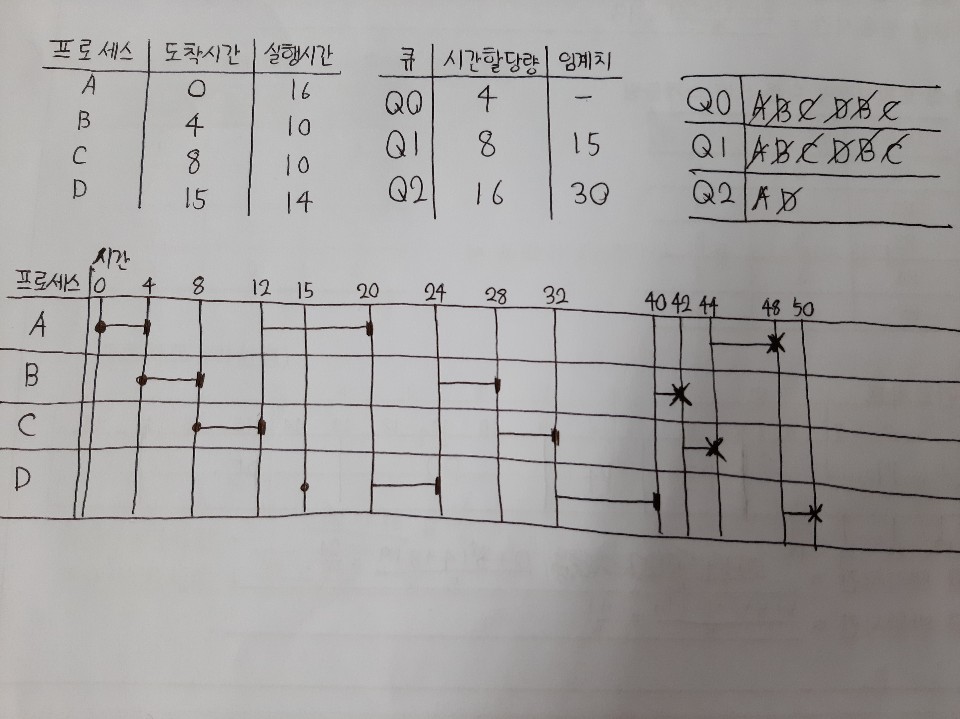 프로세스 도착시간 실행시간
A 0 16
B 4 10
C 8 10
D 15 14
큐 시간할당량 임계치
Q0 4 -
Q1 8 15
Q2 16 30
Q0 A B C D B C
Q1 A B C D B C
Q2 A D
시간
프로세스 0 4 8 12 15 20 24 28 32 40 42 44 48 50
A
B
C
D